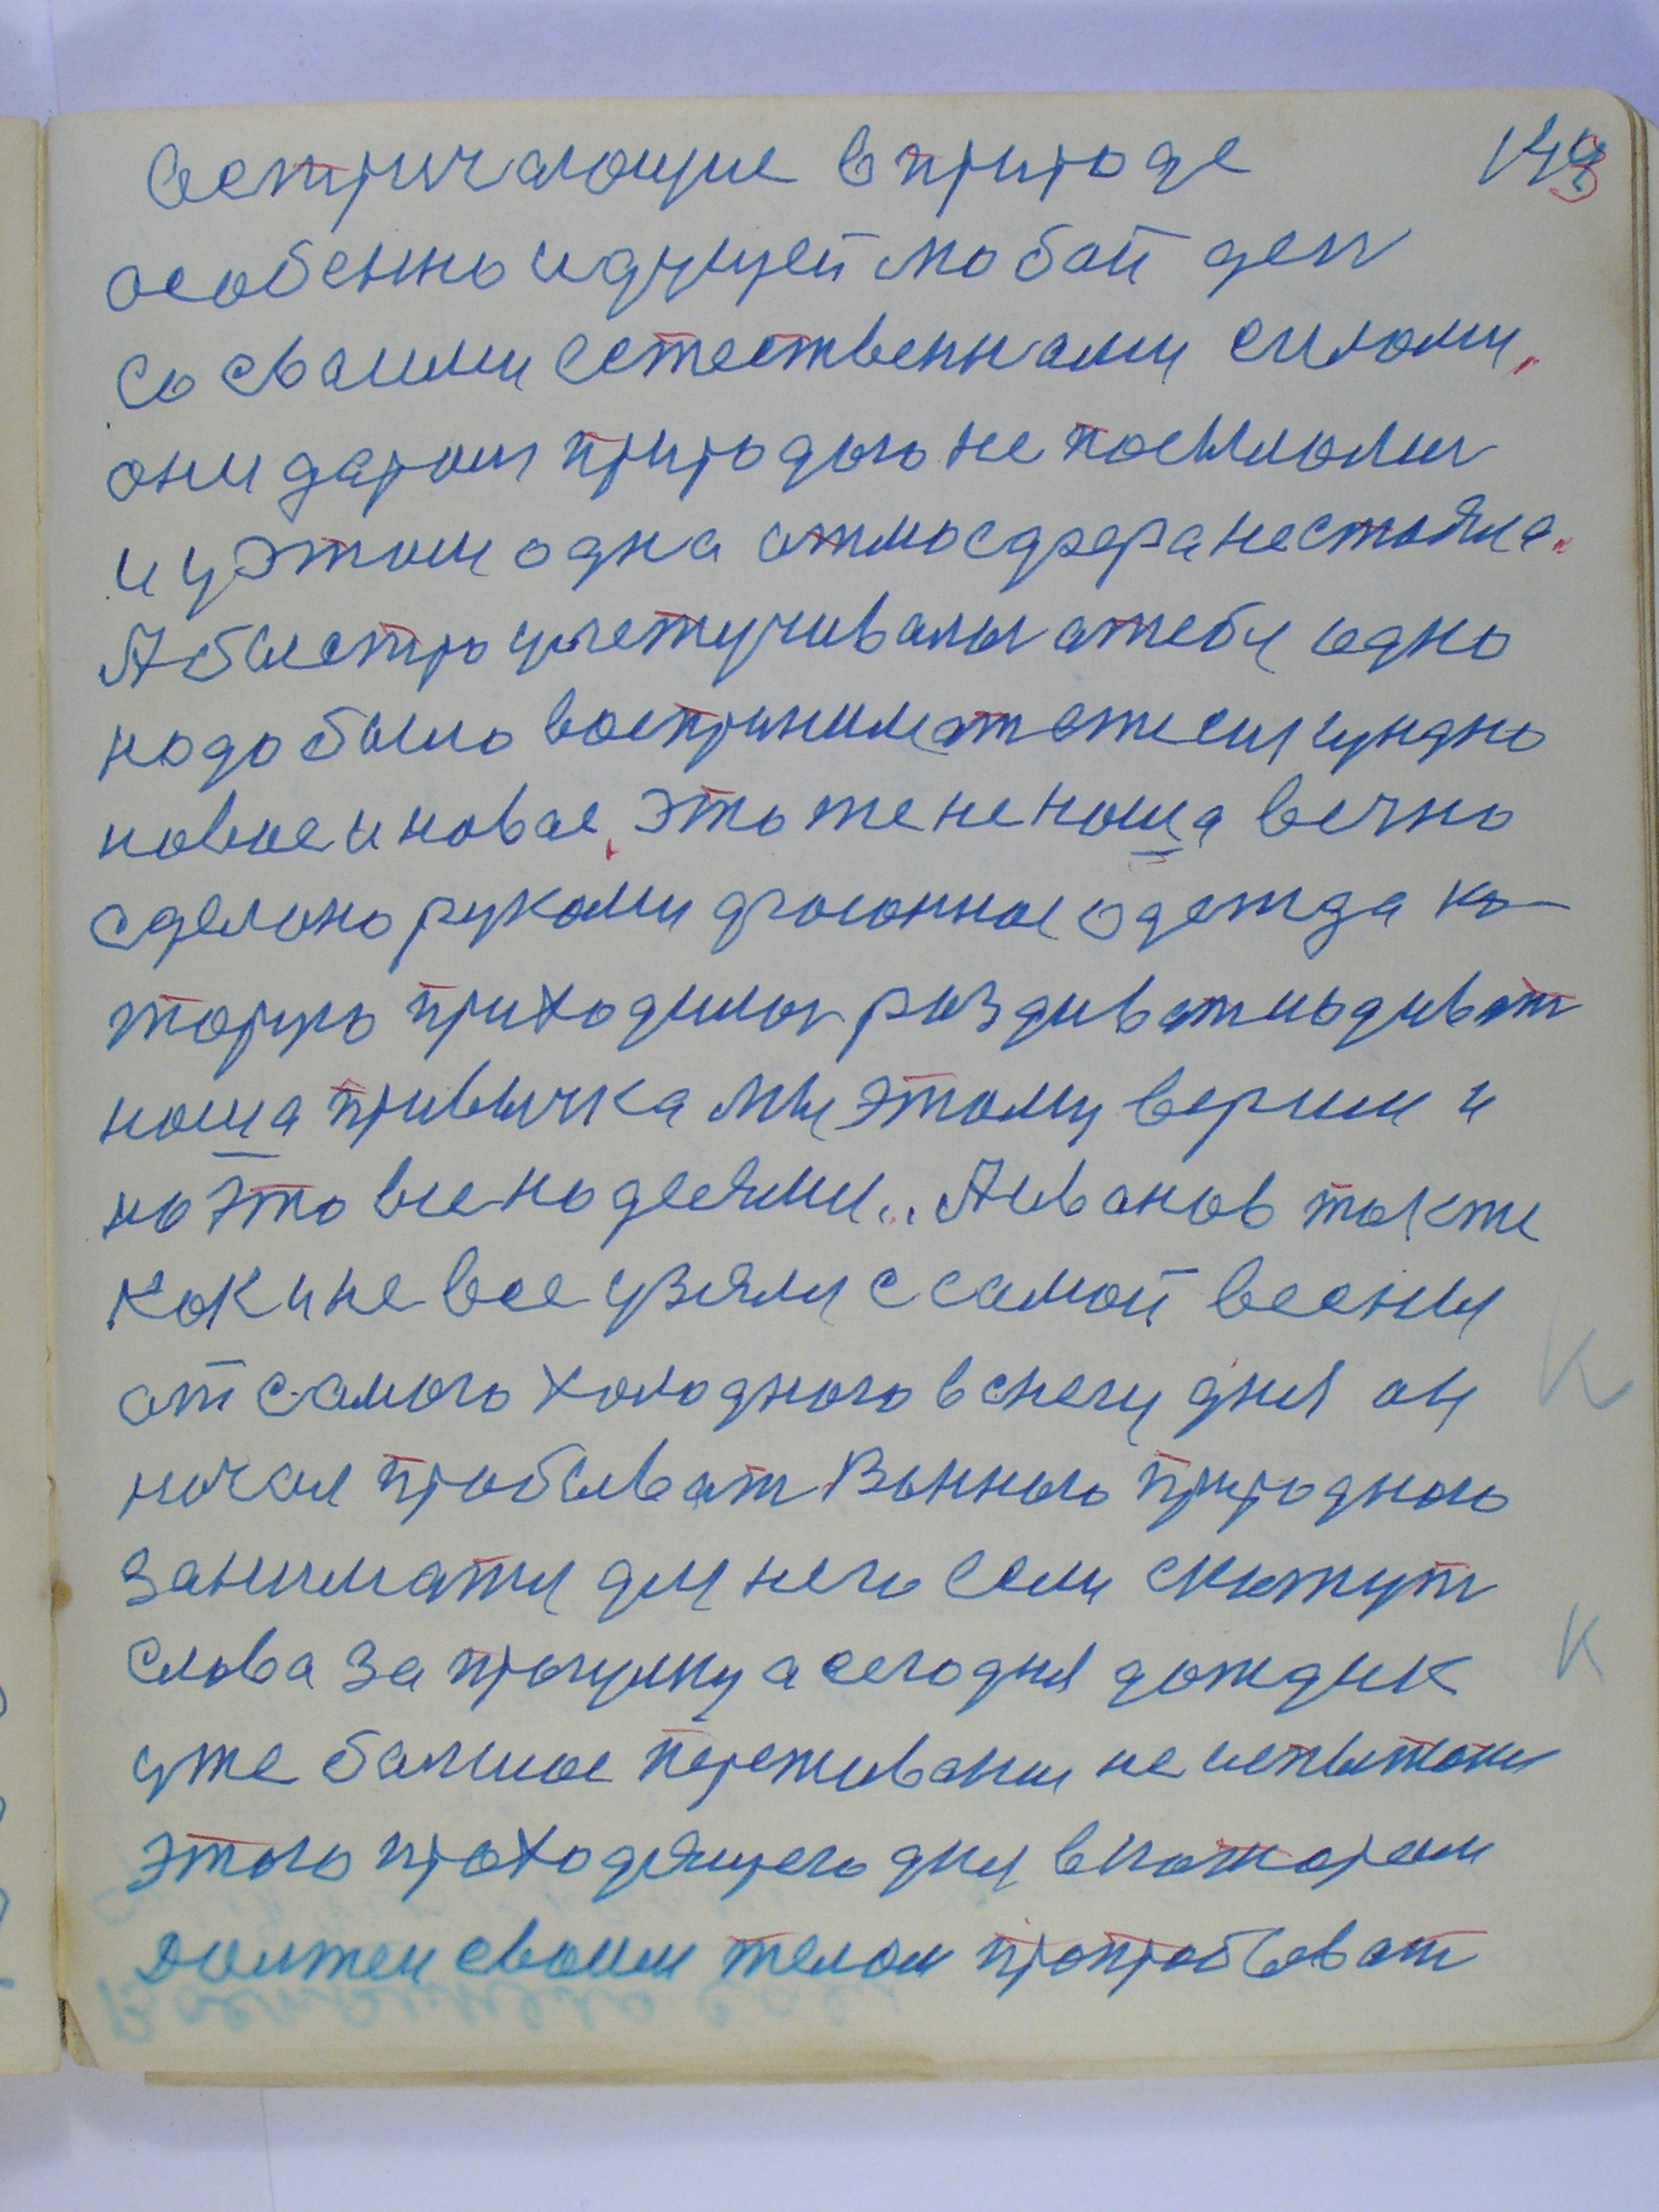 встричающие в природе 143
особенно идущей любой ден
со сваими естественнами силами,
они даром природою не посылолис
и у этом одна атмосфера нестояла.
А быстро улетучивалас а тебе одно
надо было воспринимат ежесикундно
новое и новае, это же не наша вечно
сделоно руками фасонное одежда ко-
торую приходилос раздиват и одиват
наша привычка мы этому верим и
на это все надеялис.. А иванов также
как и не все узяли с самой весны
от самого холодного в снегу дня он
начал пробыват Ванного природного
занимати для него если скажут
слова за прогулку а сегодня дождик
уже балшое переживания не испытаны
этого проходящего дня в котором
Должен сваим телом пропробоват